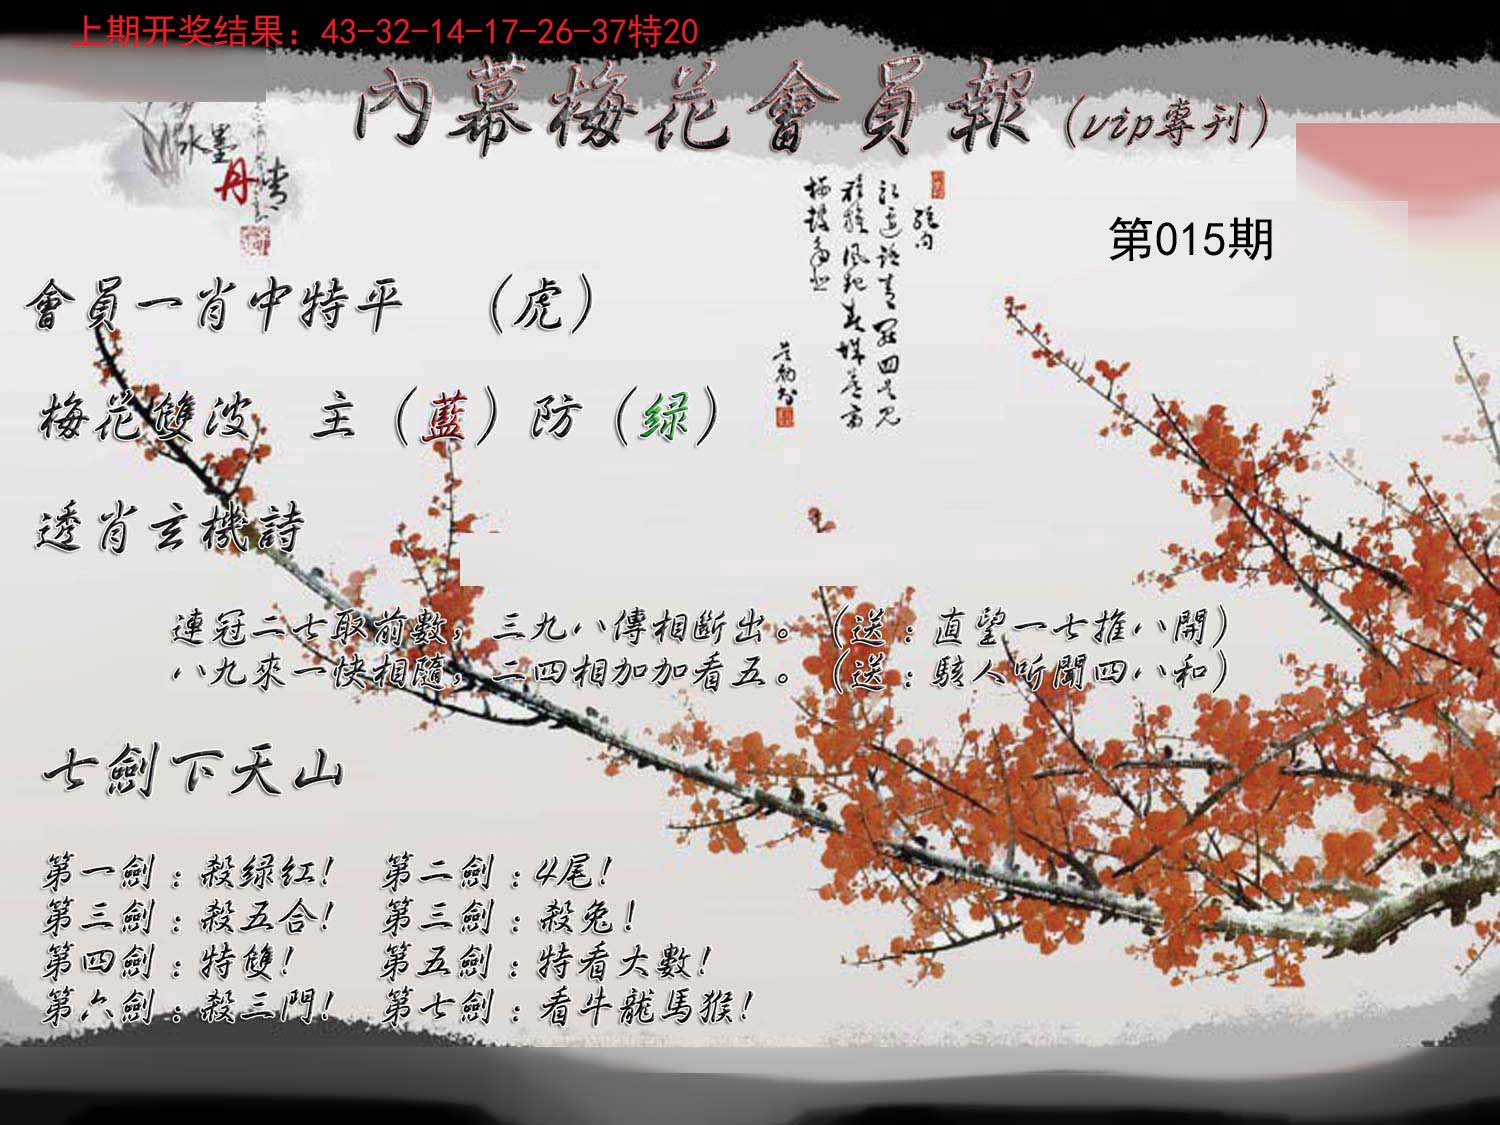 上期开奖结果：43-32-14-17-26-37特20
內幕梅花會員報(vip專刊)
水墨丹青
第015期
會員一肖中特平 （虎）
梅花雙波 主（藍）防（绿）
透肖玄機詩
連冠二七取前數，三九八傳相斷出。（送：直望一七推八開）
八九來一快相隨，二四相加加看五。（送：駭人听聞四八和）
七劍下天山
第一劍：殺绿红! 第二劍：4尾!
第三劍：殺五合! 第三劍：殺兔!
第四劍：特雙! 第五劍：特看大數!
第六劍：殺三門! 第七劍：看牛龍馬猴!